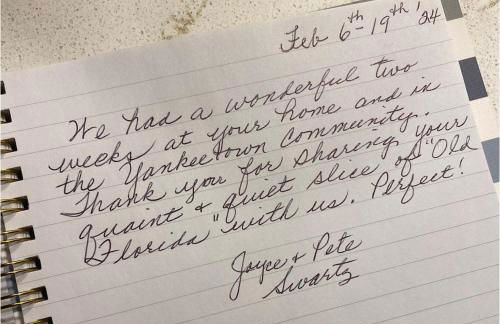 Feb 6th-19th '24
We had a wonderful two
weeks at your home and in
the Yankeetown Community.
Thank you for sharing your
quaint & quiet slice of "Old
Florida" with us. Perfect!
Joyce & Pete
Swartz